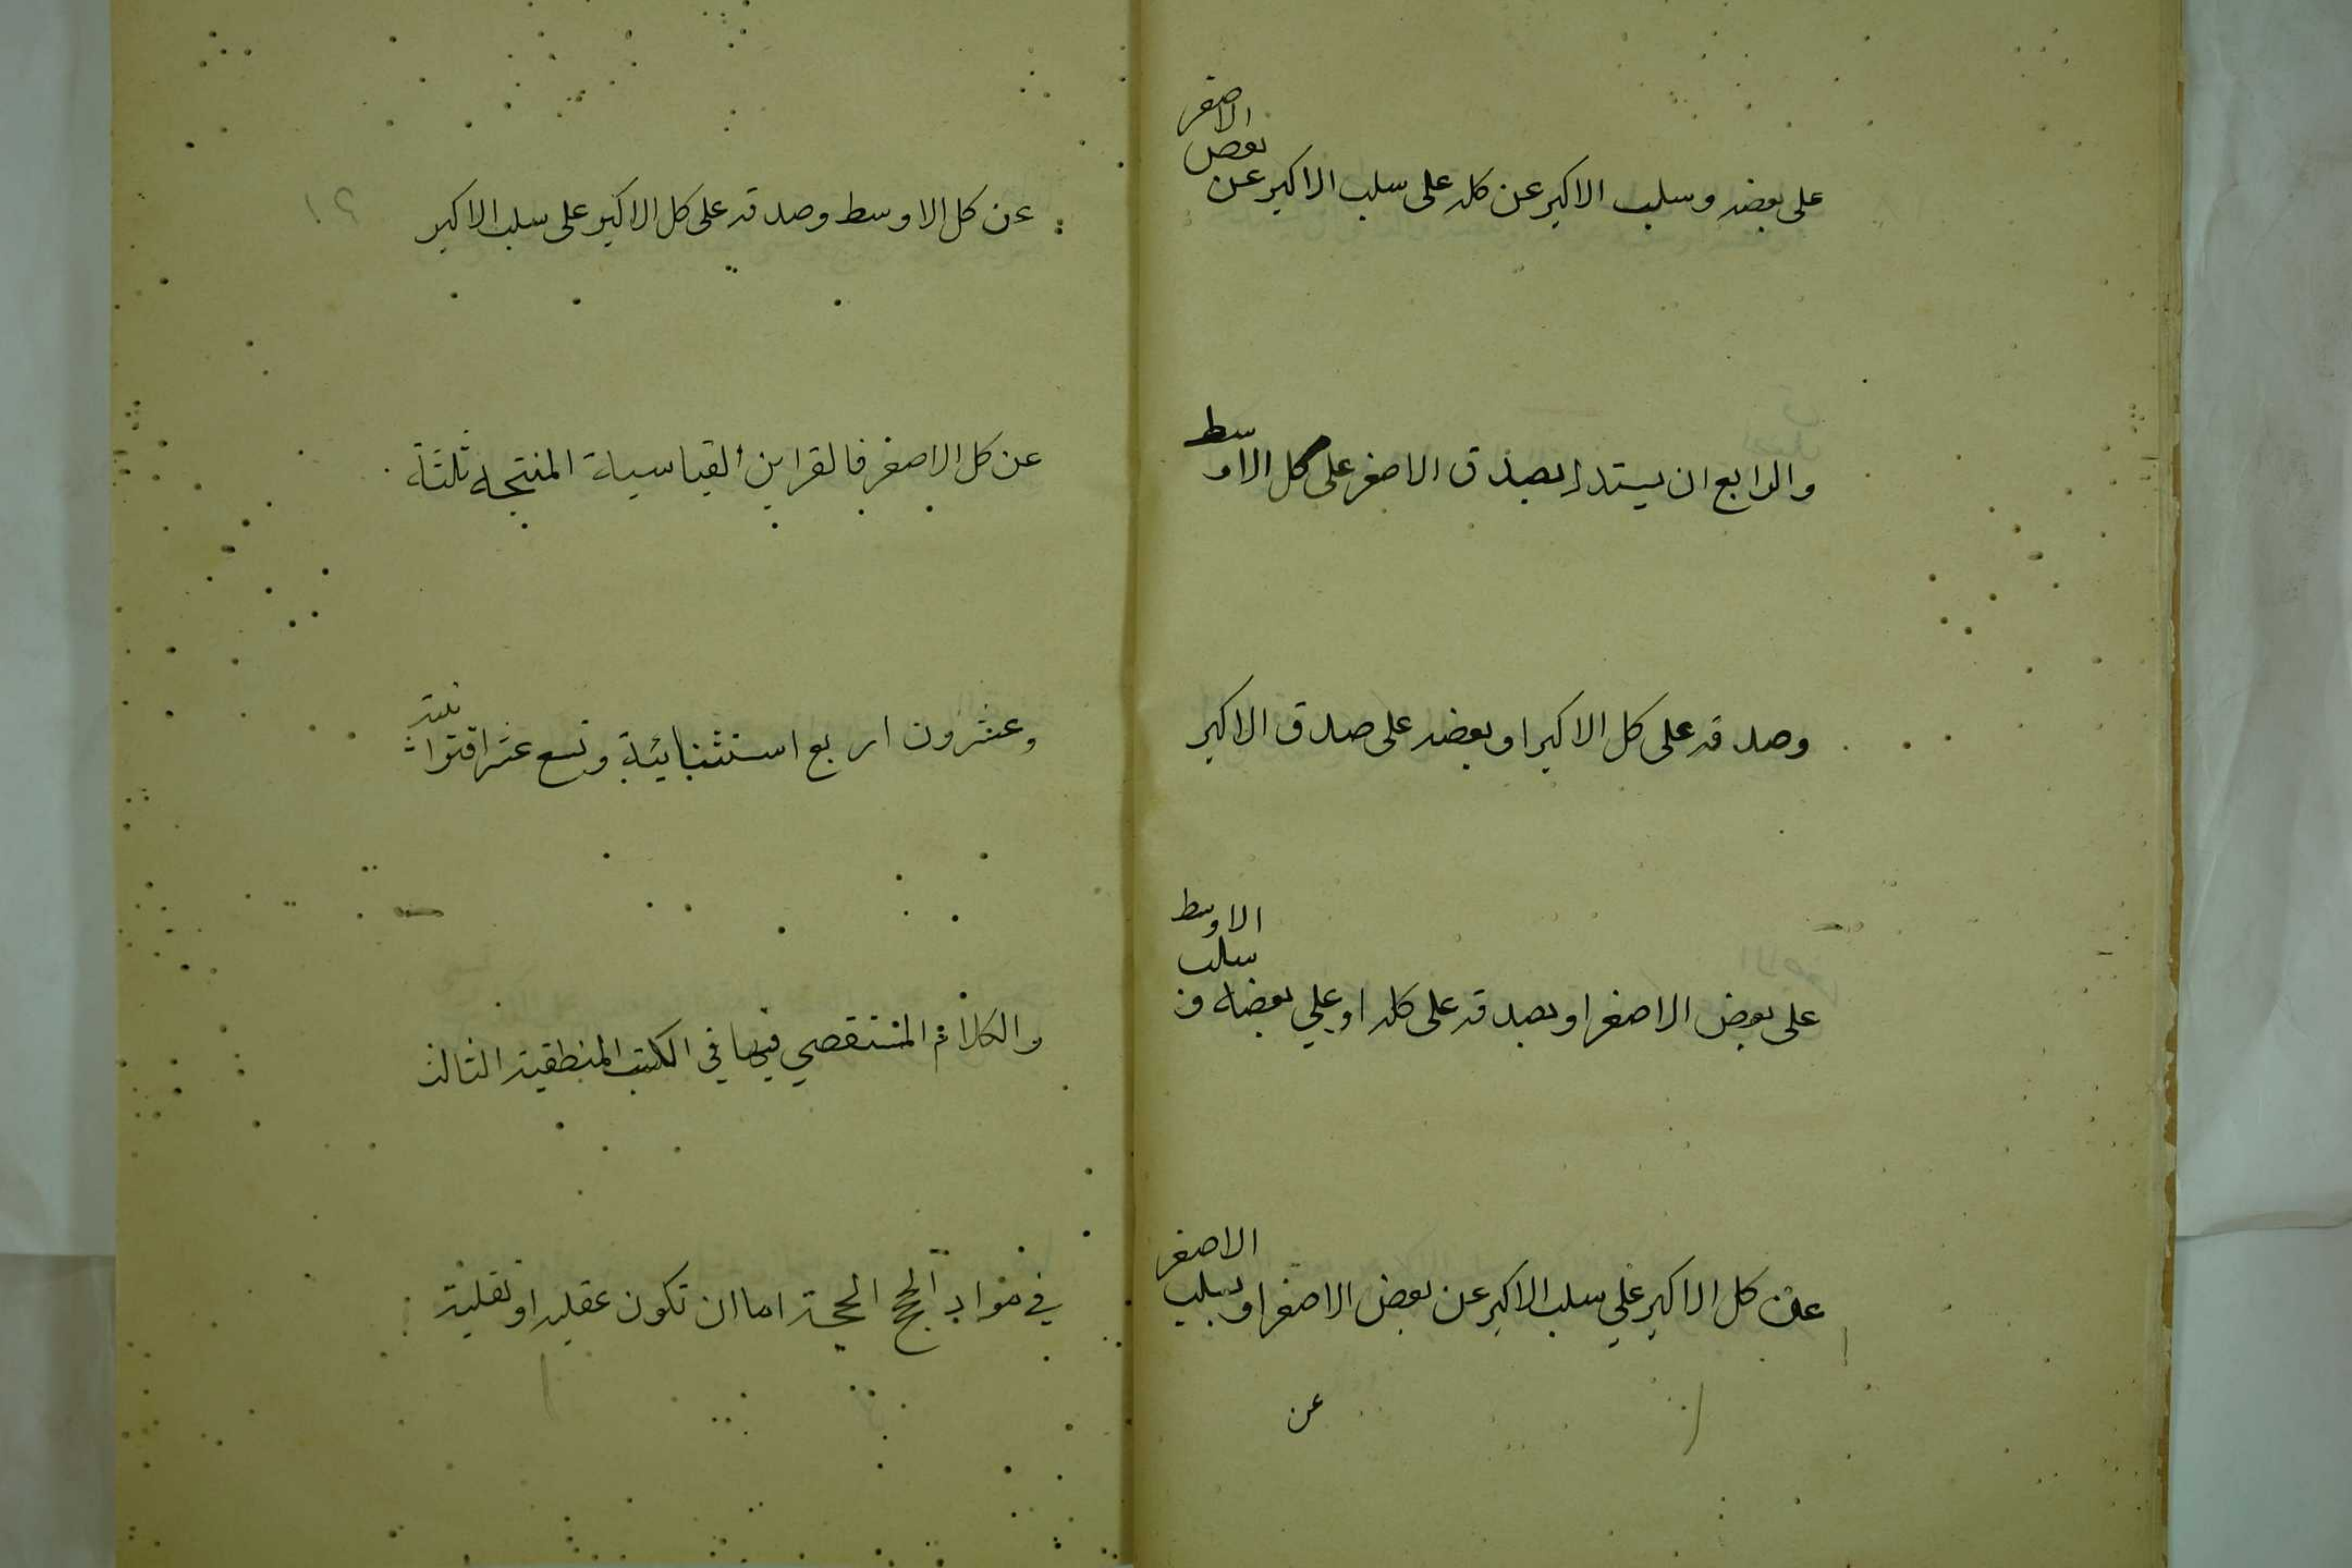 على بعضه وسلب الاكبر عن كله على سلب الاكبر عن بعض الاصغر
والرابع ان يستدل بصدق الاصغر على كل الاوسط
وصدقه على كل الاكبر او بعضه على صدق الاكبر
على بعض الاصغر او بصدقه على كله او على بعضه و سلب الاوسط
عن كل الاكبر على سلب الاكبر عن بعض الاصغر او بسلب الاصغر
عن
عن كل الاوسط وصدقه على كل الاكبر على سلب الاكبر
عن كل الاصغر فالقراين القياسية المنتجه ثلثة
وعشرون اربع استثنايية وتسع عشر اقترانية
والكلام المستقصي فيها في الكتب المنطقية الثالث
في مواد الحجج الحجة اما ان تكون عقليه او نقلية